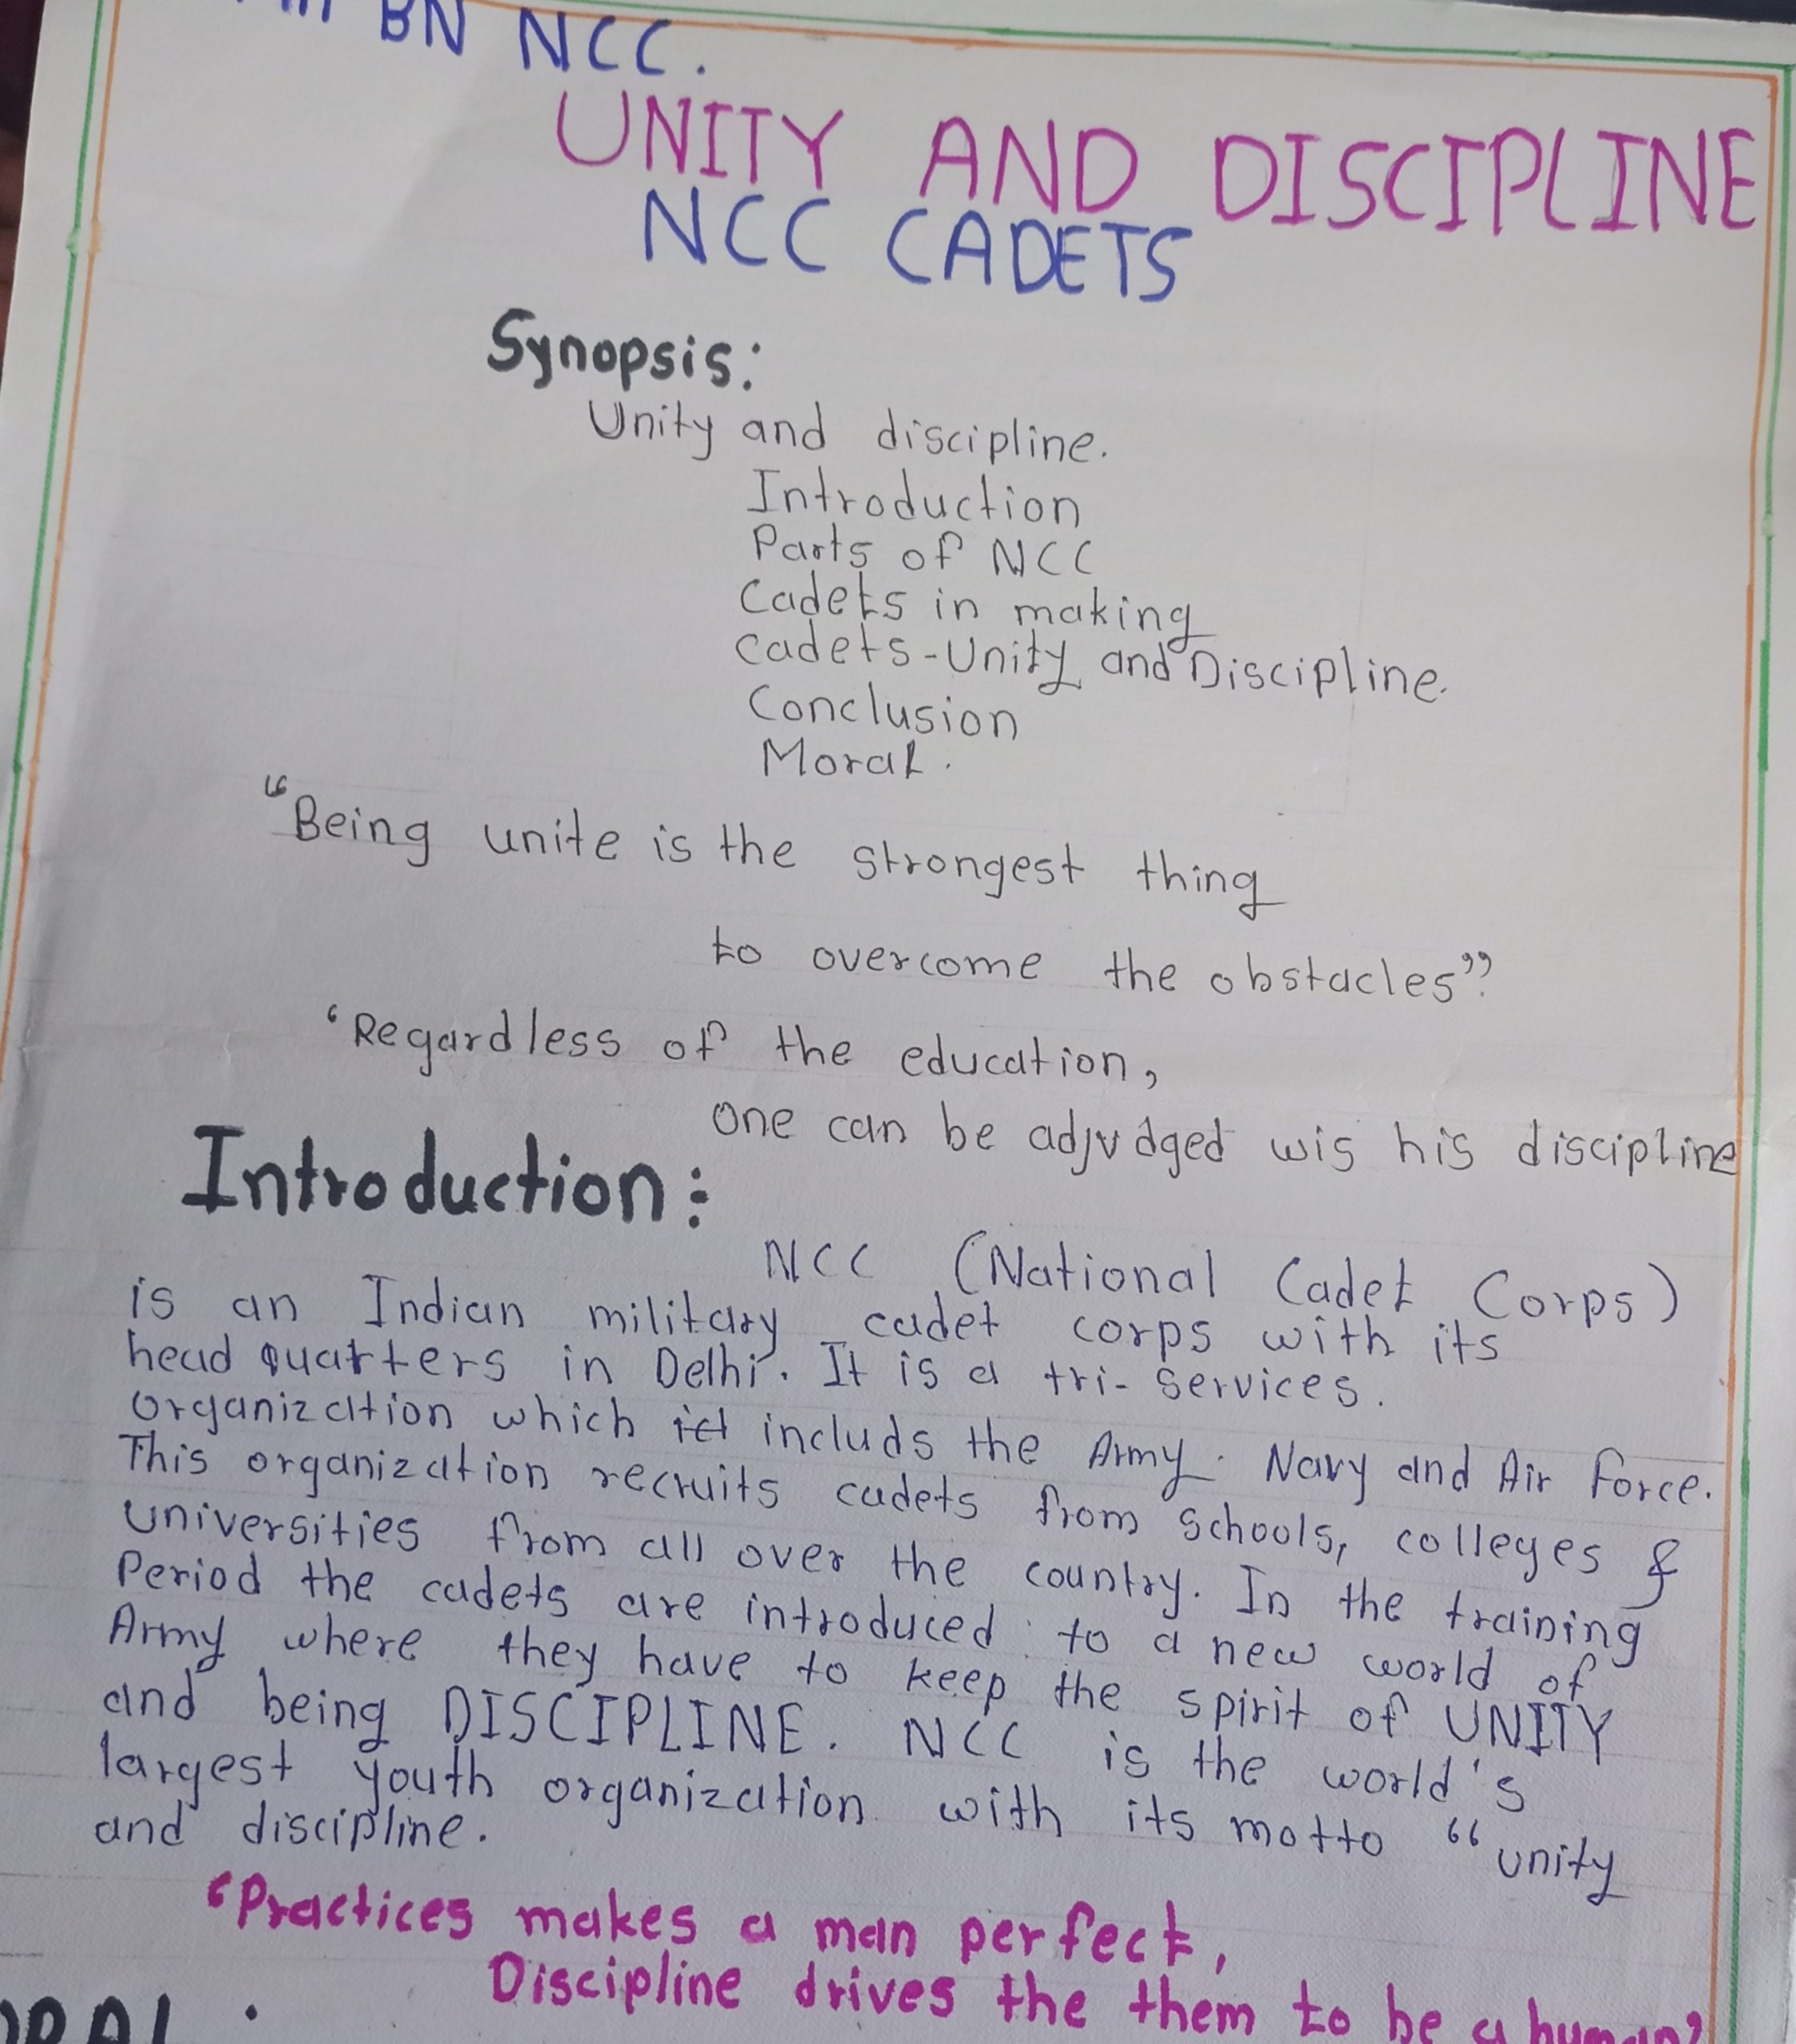 BN NCC.
UNITY AND DISCIPLINE
NCC CADETS
Synopsis:
Unity and discipline.
Introduction
Parts of NCC
Cadets in making
cadets-Unity and Discipline.
Conclusion
Moral.
"Being unite is the strongest thing
to overcome the obstacles"
'Regardless of the education,
one can be adjudged wis his discipline
Introduction:
NCC (National Cadet Corps)
is an Indian military cadet corps with its
head quarters in Delhi. It is a tri-services.
organization which includs the Army. Navy and Air Force.
This organization recruits cadets from schools, colleges &
universities from all over the country. In the training
Period the cadets are introduced to a new world of
Army where they have to keep the spirit of UNITY
and being DISCIPLINE. NCC is the world's
largest youth organization with its motto "unity
and discipline.
'Practices makes a man perfect,
Discipline drives the them to be a human'